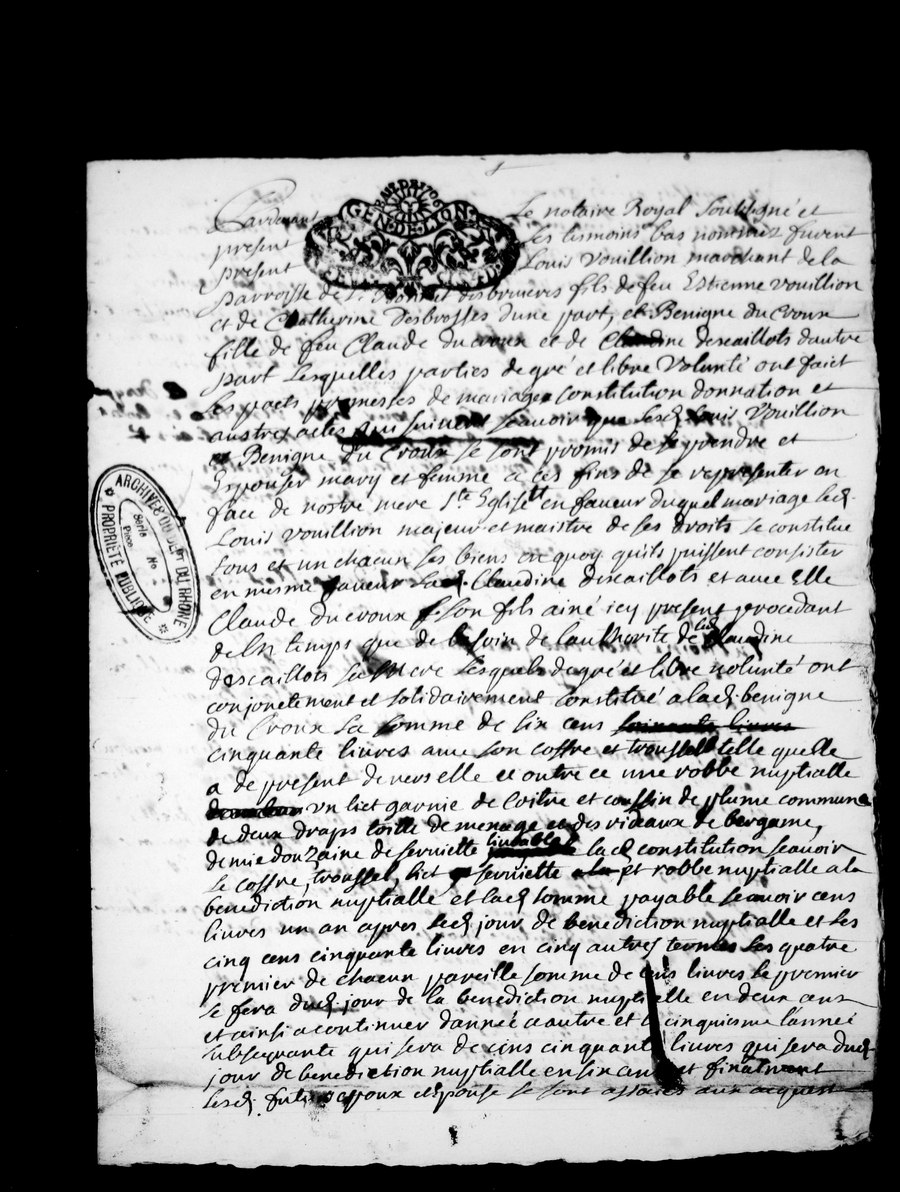 BAUX DE 1706
GEN·DE·LION
Pardevant Le notaire Royal soubsigné et
present les tesmoins bas nommez furent
present Louis vouillion marchant de la
parroisse de St bonnet des bruieres fils de feu Estienne vouillion
et de Catherine Desbrosses dune part, et Benigne du Croux
fille de feu Claude ducroux et de Claudine descaillots dautre
part Lesquelles parties de gré et libre volunté ont faict
les pacts promesses de mariage constitution donnation et
austres actes qui suivent scavoir que lesd. Louis Vouillion
et Benigne du Croux se sont promis de se prendre et
Espouser mary et femme a ces fins de se representer en
face de nostre mere Ste Eglise en faueur duquel mariage led.
Louis vouillion majeur et maistre de ses droits se constitue
tous et un chacun ses biens en quoy quils puissent consister
en mesme faueur lad. Claudine descaillots et auec Elle
Claude du croux son fils ainé icy present procedant
de temps que de besoin de lauthorité de lad. Claudine
descaillots sa mere lesquels de gré et libre volunté ont
conjonctement et solidairement constitué a lad. benigne
du Croux la somme de six cens
cinquante liures auec son coffre et troussel telle quelle
a de present deuers elle et outre ce une robbe nuptialle
un lict garnie de Coitre et coussin de plume commune
de deux draps toille de menage et des rideaux de bergame,
demie douzaine de seruiette lad. constitution scauoir
le coffre, troussel, lict seruiette et robbe nuptialle a la
benediction nuptialle et lad. somme payable scauoir cens
liures un an apres led. jour de benediction nuptialle et les
cinq cens cinquante liures en cinq autres termes les quatre
premier de chacun pareille somme de cens liures le premier
se fera dud. jour de la benediction nuptialle en deux ans
et ainsi a continuer dannée a autre et le cinquiesme lannée
subsequante qui sera de cens cinquante liures qui sera dud.
jour de benediction nuptialle en six ans et finalment
lesd. futurs epoux et espouse se sont associés aux acquest
ARCHIVES DU DEPT DU RHONE
PROPRIÉTÉ PUBLIQUE
Série No
Pièce